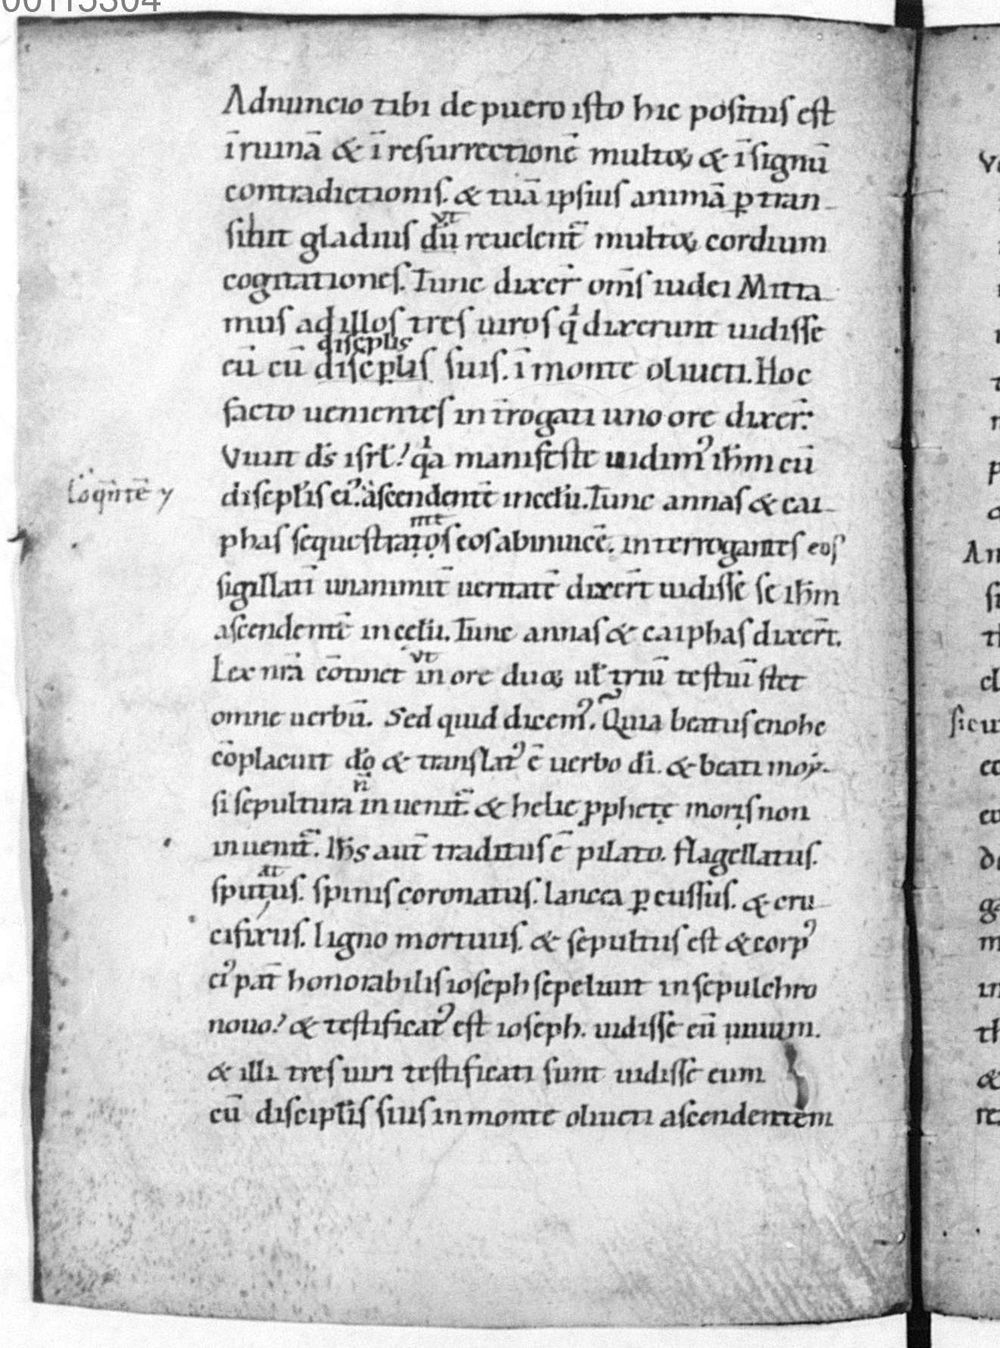 00115304
Adnuncio tibi de puero isto hic positus est
īruinā & ī resurrectionē multoꝝ & ī signū
contradictionis. & tuā ipsius animā ꝑtran
sibit gladius dū reuelent̄ multoꝝ cordium
ut
cogitationes. Tunc dixer̄ om̄s iudei Mitta
mus ad illos tres uiros qͥ dixerunt uidisse
discplis
eū cū discplis suis. ī monte oliueti. Hoc
facto uenientes in īrogati uno ore dixer̄:
Viuit dꝰs isrł! qͥa manifeste uidimꝰ ihm cū
loq̄ntē
discplis eiꝰ. ascendentē in celū. Tunc annas & cai
phas sequestratos eos abinuicē. interrogantes eos
mt
sigillatī unanimit̄ ueritatē dixer̄t uidisse se ihm
ascendentē in celū. Tunc annas & caiphas dixer̄t.
ut
Lex nr̄a cōtinet in ore duoꝝ ul̄ triū testiū stet
omne uerbū. Sed quid dicemꝰ. Quia beatus enohc
cōplacuit do & translatꝰ ē uerbo dī. & beati moy
n̄
si sepultura inuenit̄. & helie ꝓphete moris non
inuenit̄. Ihs aut̄ traditus ē pilato. flagellatus.
at
sputus. spinis coronatus. lancea ꝑcussus. & cru
cifixus. ligno mortuus. & sepultus est & corpꝰ
eiꝰ pat̄ honorabilis ioseph sepeliuit in sepulchro
nouo! & testificatꝰ est ioseph. uidisse eū uiuum.
& illi tres uiri testificati sunt uidisse eum
cū discipłis suis in monte oliueti ascendentem